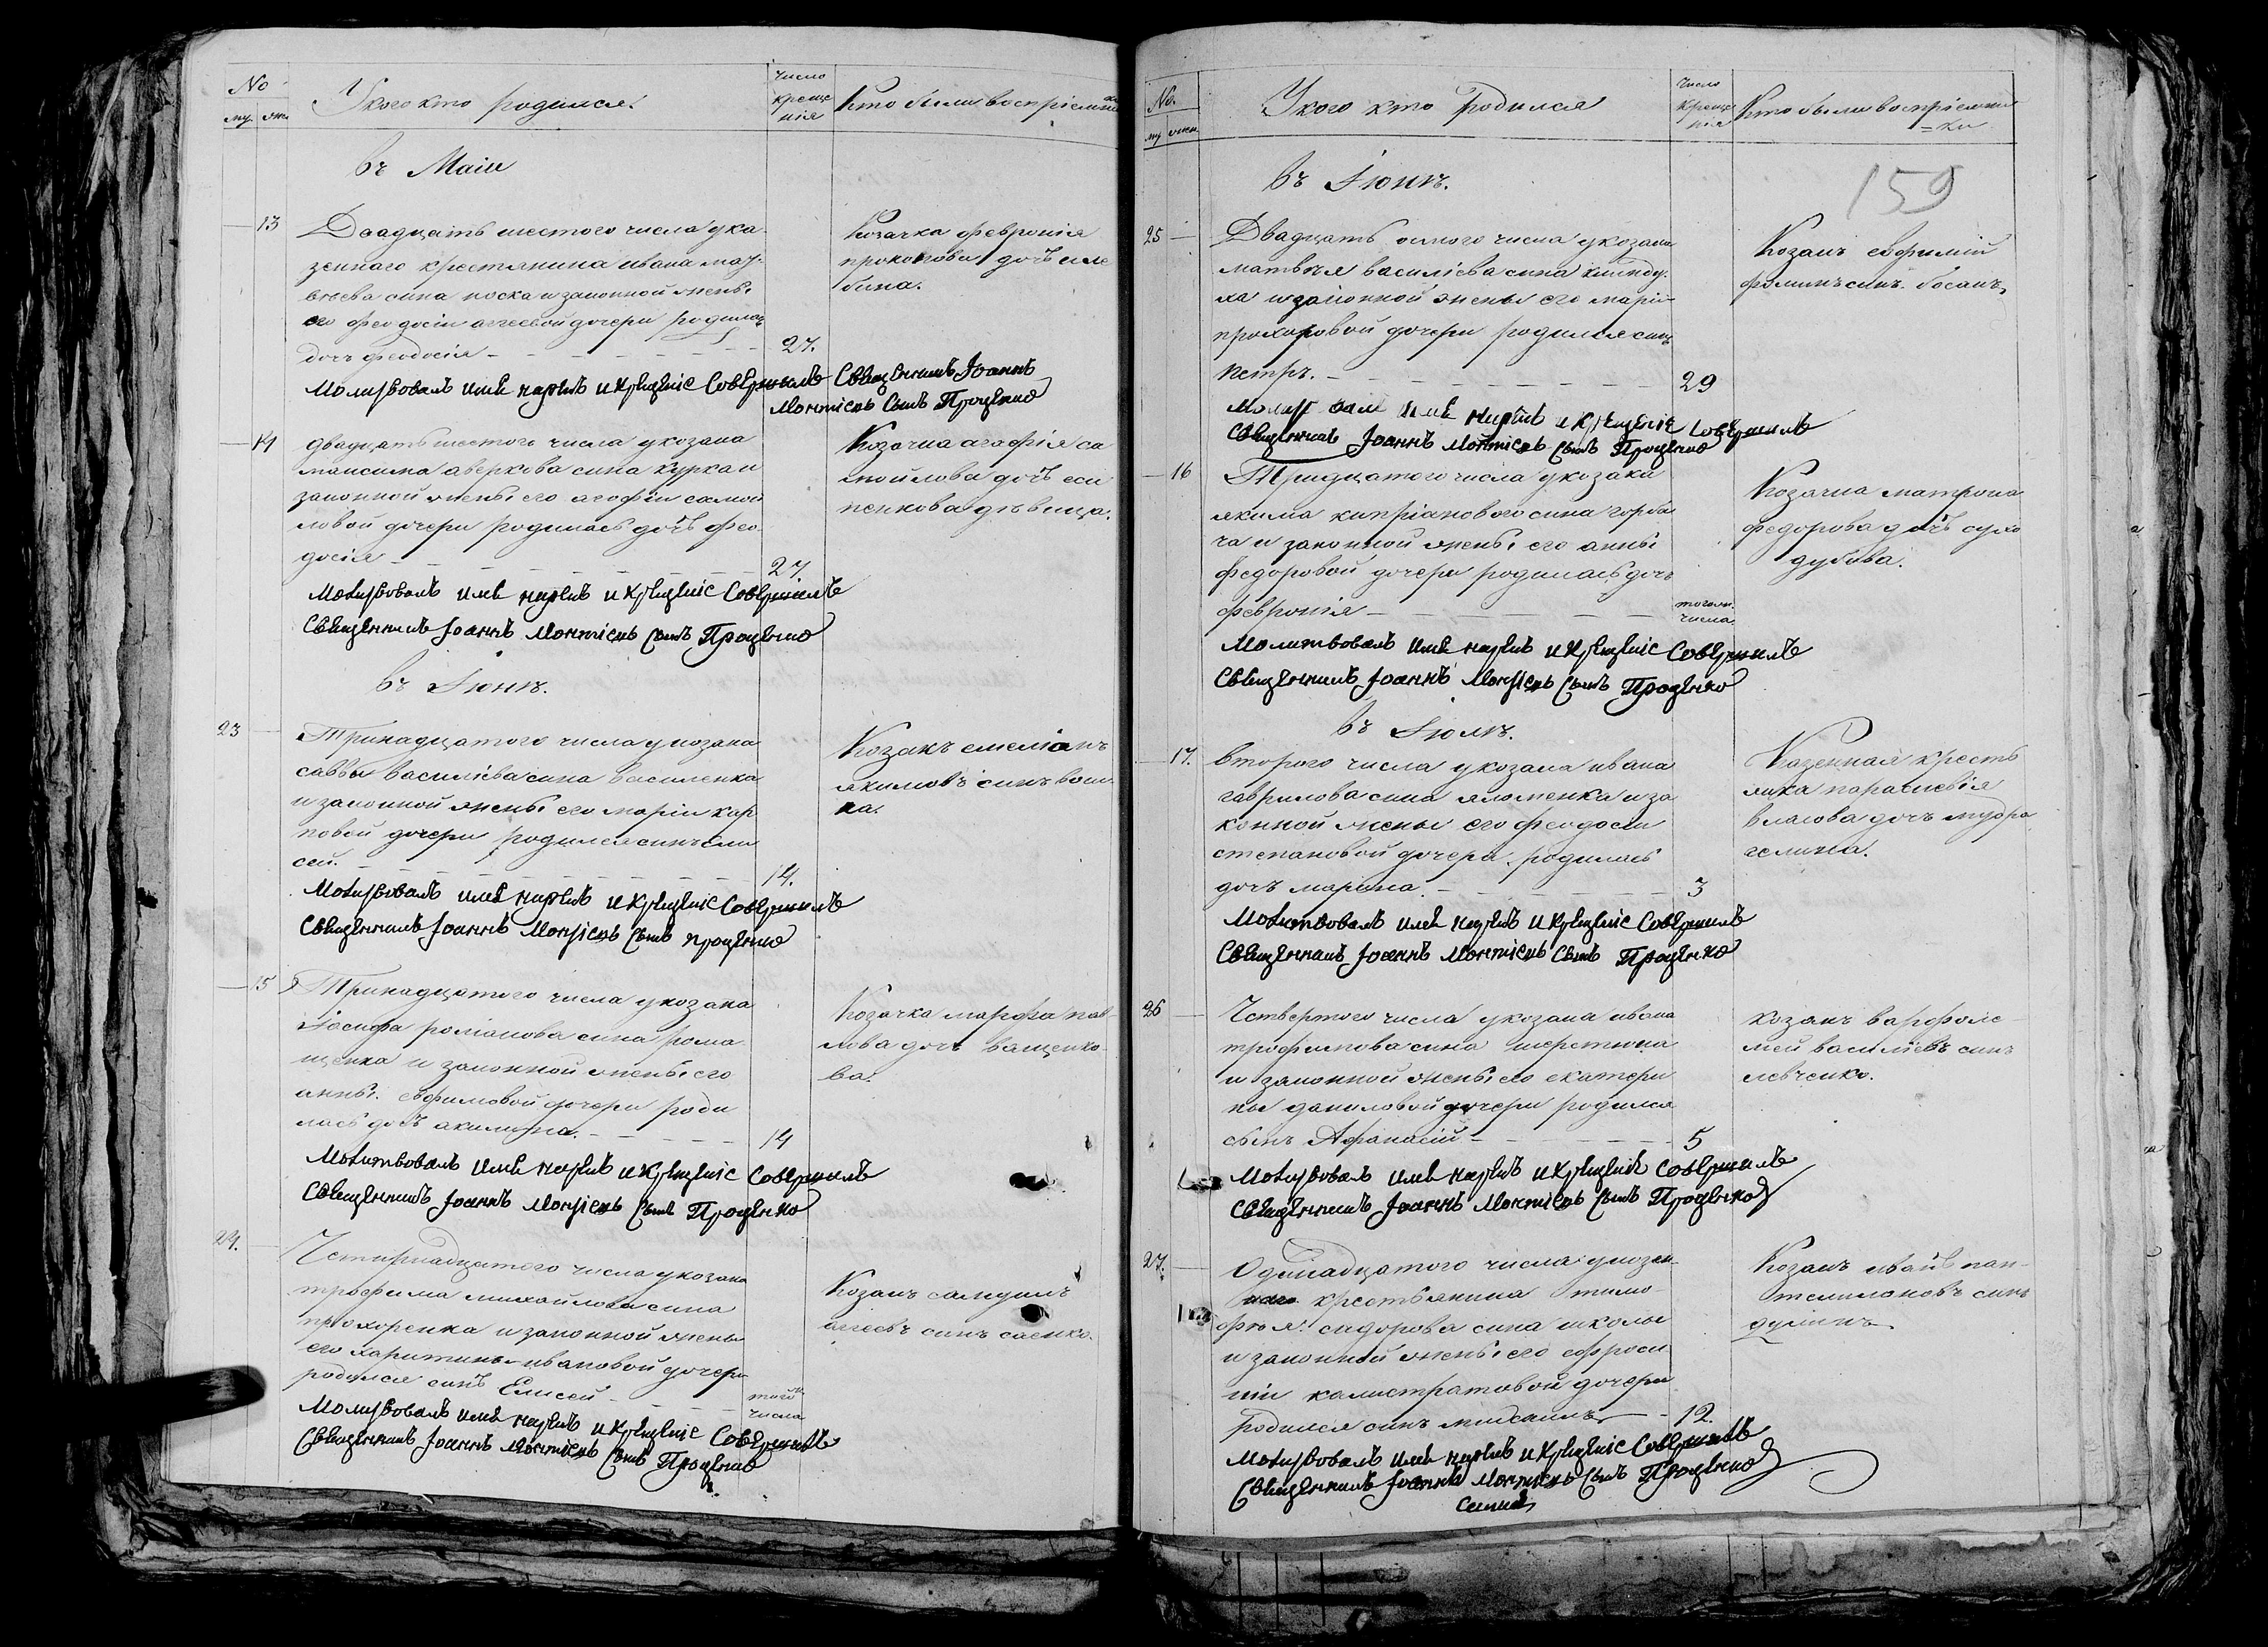 No
му. жен.
У кого кто родился.
число
креще
нія
Кто были воспріемни
ки
въ Маіи
13
Двадцать шестого числа у ка
зеннаго крестянина ивана мат
веева сина носка и законной жены
его феодосіи агеевой дочери родилась
дочь феодосія
27.
Козачка февронія
прокопова дочь
бина.
Молитвовалъ имя нарекъ и крещеніе совершилъ Священникъ Іоаннъ
Моисіевъ сынъ Проценко
14
двадцать шестого числа у козака
максима аверкова сина курка и
законной жены его агафіи самои
ловой дочери родилась дочь фео
досія
27
Козачка агафія са
мойлова дочь еси
пенкова дѣвица.
Молитвовалъ имя нарекъ и крещеніе совершилъ
Священникъ Іоаннъ Моисіевъ сынъ Проценко
въ Іюнѣ.
23
Тринадцатого числа у козака
саввы василіева сина василенка
и законной жены его маріи кар
повой дочери родился синъ ели
сей.
14.
Козакъ емеліанъ
якимовъ синъ
ка.
Молитвовалъ имя нарекъ и крещеніе совершилъ
Священникъ Іоаннъ Моисіевъ сынъ проценко
15
Тринадцатого числа у козака
Іосифа романова сина рома
щенка и законной жены его
анны. евфимовой дочери роди
лась дочь акилина.
14
Козачка марфа пав
лова дочь ващенко
ва.
Молитвовалъ имя нарекъ и крещеніе совершилъ
Священникъ Іоаннъ Моисіевъ сынъ Проценко
24.
Четирнадцатого числа у козака
трофима михайлова сина
прохоренка и законной жены
его харитины ивановой дочери
родился синъ Елисей
того ж
числа
Козакъ самуилъ
агеевъ синъ саенко.
Молитвовалъ имя нарекъ и крещеніе совершилъ
Священникъ Іоаннъ Моисіевъ сынъ Проценко
No.
му жен
У кого кто родился
число
креще
нія
Кто были воспріемни
=ки
159
въ Іюнѣ.
25
Двадцать осмого числа у козака
матвѣя василіева сина
ха и законной жены его маріи
прохоровой дочери родился синъ
петръ.
29
Козакъ евфимій
фоминъ синъ босакъ
имя нарекъ и крещеніе совершилъ
Священникъ Іоаннъ Моисіевъ сынъ Проценко
16
Тридцатого числа у козака
якима кипріанового сина горба
ча и законной жены его анны
федоровой дочери родилась дочь
февронія
того ж.
числа.
Козачка матрона
федорова дочь сухо
дубова.
Молитвовалъ имя нарекъ и крещеніе совершилъ
Священникъ Іоаннъ Моисіевъ сынъ Проценко
въ Іюлѣ.
17.
второго числа у козака ивана
гаврилова сина яломенка и за
конной жены его феодосіи
степановой дочери. родилась
дочь марина
3
Казенная кресть
янка параскевія
власова дочь мудра
гелина.
Молитвовалъ имя нарекъ и крещеніе совершилъ
Священникъ Іоаннъ Моисіевъ сынъ Проценко
26
Четвертого числа у козака ивана
трофимова сина шерстюка
и законной жены его екатери
ны даниловой дочери родился
сынъ Афанасій
5
козакъ варфоло
мей василіевъ синъ
левченко.
Молитвовалъ имя нарекъ и крещеніе совершилъ
Священникъ Іоаннъ Моисіевъ сынъ Проценко
27.
Одинадцатого числа у козен
наго крестьянина тимо
фѣя. сидорова сина школы
и законной жены его ефроси
ніи калистратовой дочери
родился синъ михаилъ
12.
Козакъ иванъ пан
телимоновъ синъ
Молитвовалъ имя нарекъ и крещеніе совершилъ
Священникъ Іоаннъ Моисіевъ сынъ Проценко